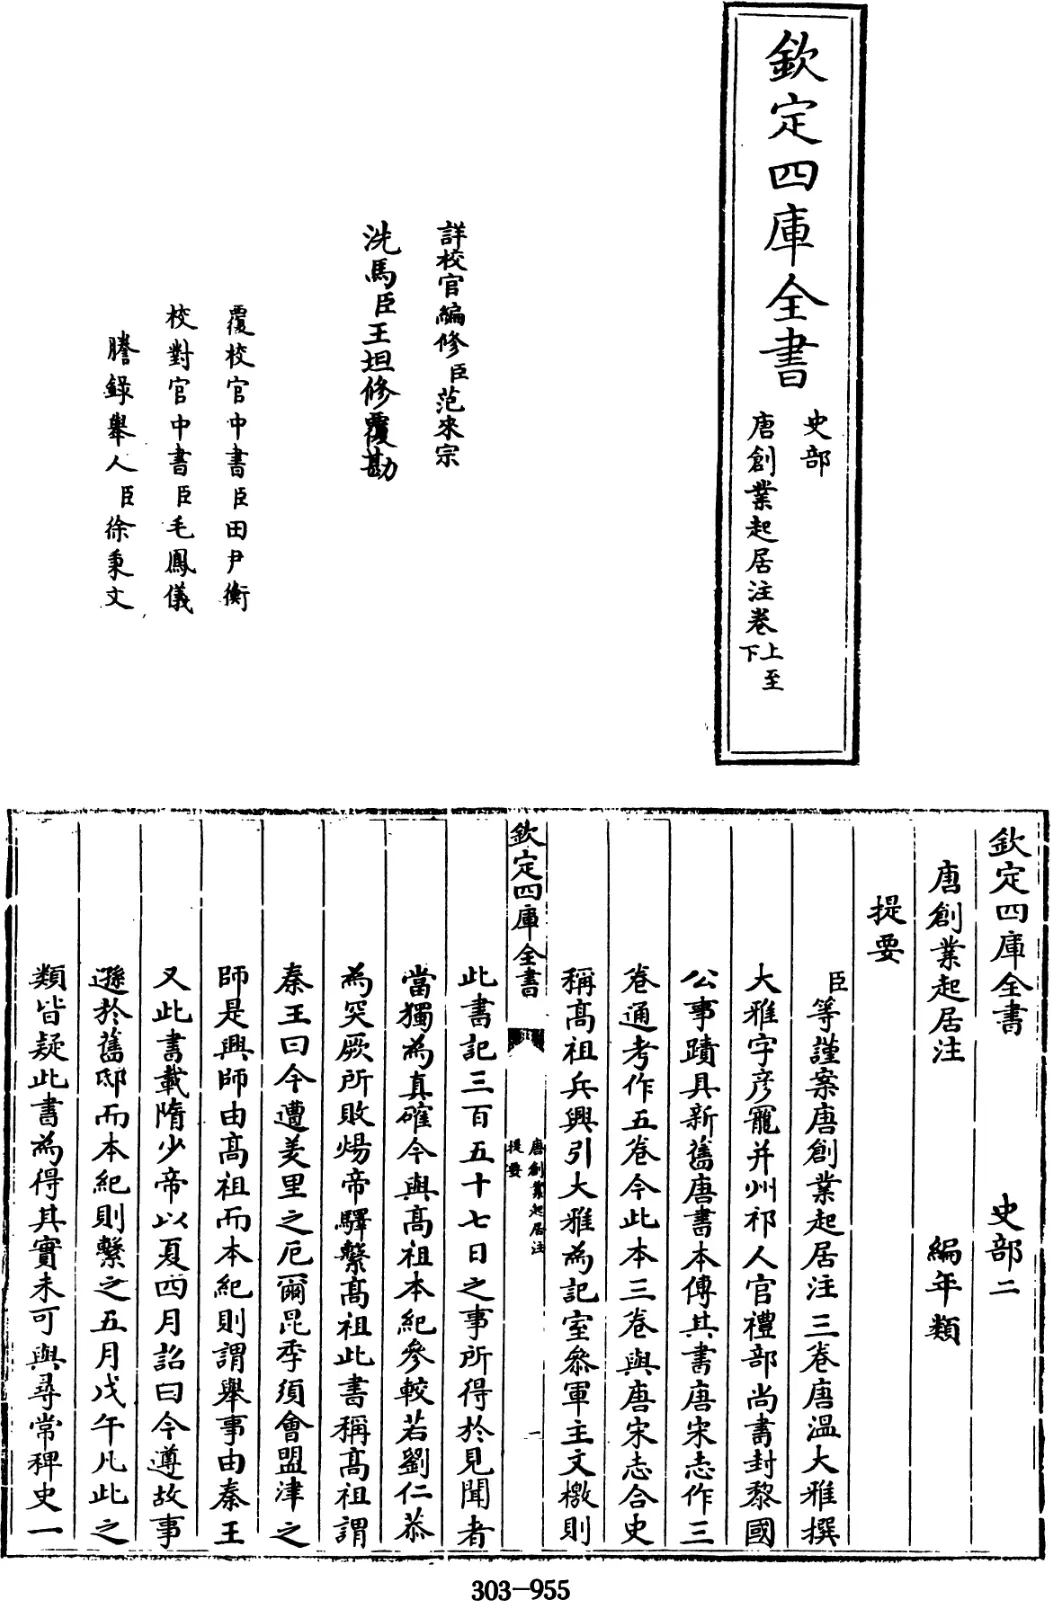 欽定四庫全書
史部
唐創業起居注卷上至下
詳校官編修臣范來宗
洗馬臣王坦修覆勘
覆校官中書臣田尹衡
校對官中書臣毛鳳儀
謄錄舉人臣徐秉文
欽定四庫全書 史部二
唐創業起居注 編年類
提要
臣等謹案唐創業起居注三卷唐温大雅撰
大雅字彦寵并州祁人官禮部尚書封黎國
公事蹟具新舊唐書本傳其書唐宋志作三
卷通考作五卷今此本三卷與唐宋志合史
稱髙祖兵興引大雅為記室參軍主文檄則
欽定四庫全書
唐創業起居注
提要
一
此書記三百五十七日之事所得於見聞者
當獨為真確今與髙祖本紀參較若劉仁恭
為突厥所敗煬帝驛繫髙祖此書稱髙祖謂
秦王曰今遭羑里之厄爾昆季須會盟津之
師是興師由髙祖而本紀則謂舉事由秦王
又此書載隋少帝以夏四月詔曰今遵故事
遜於舊邸而本紀則繫之五月戊午凡此之
類皆疑此書為得其實未可與尋常稗史一
303-955